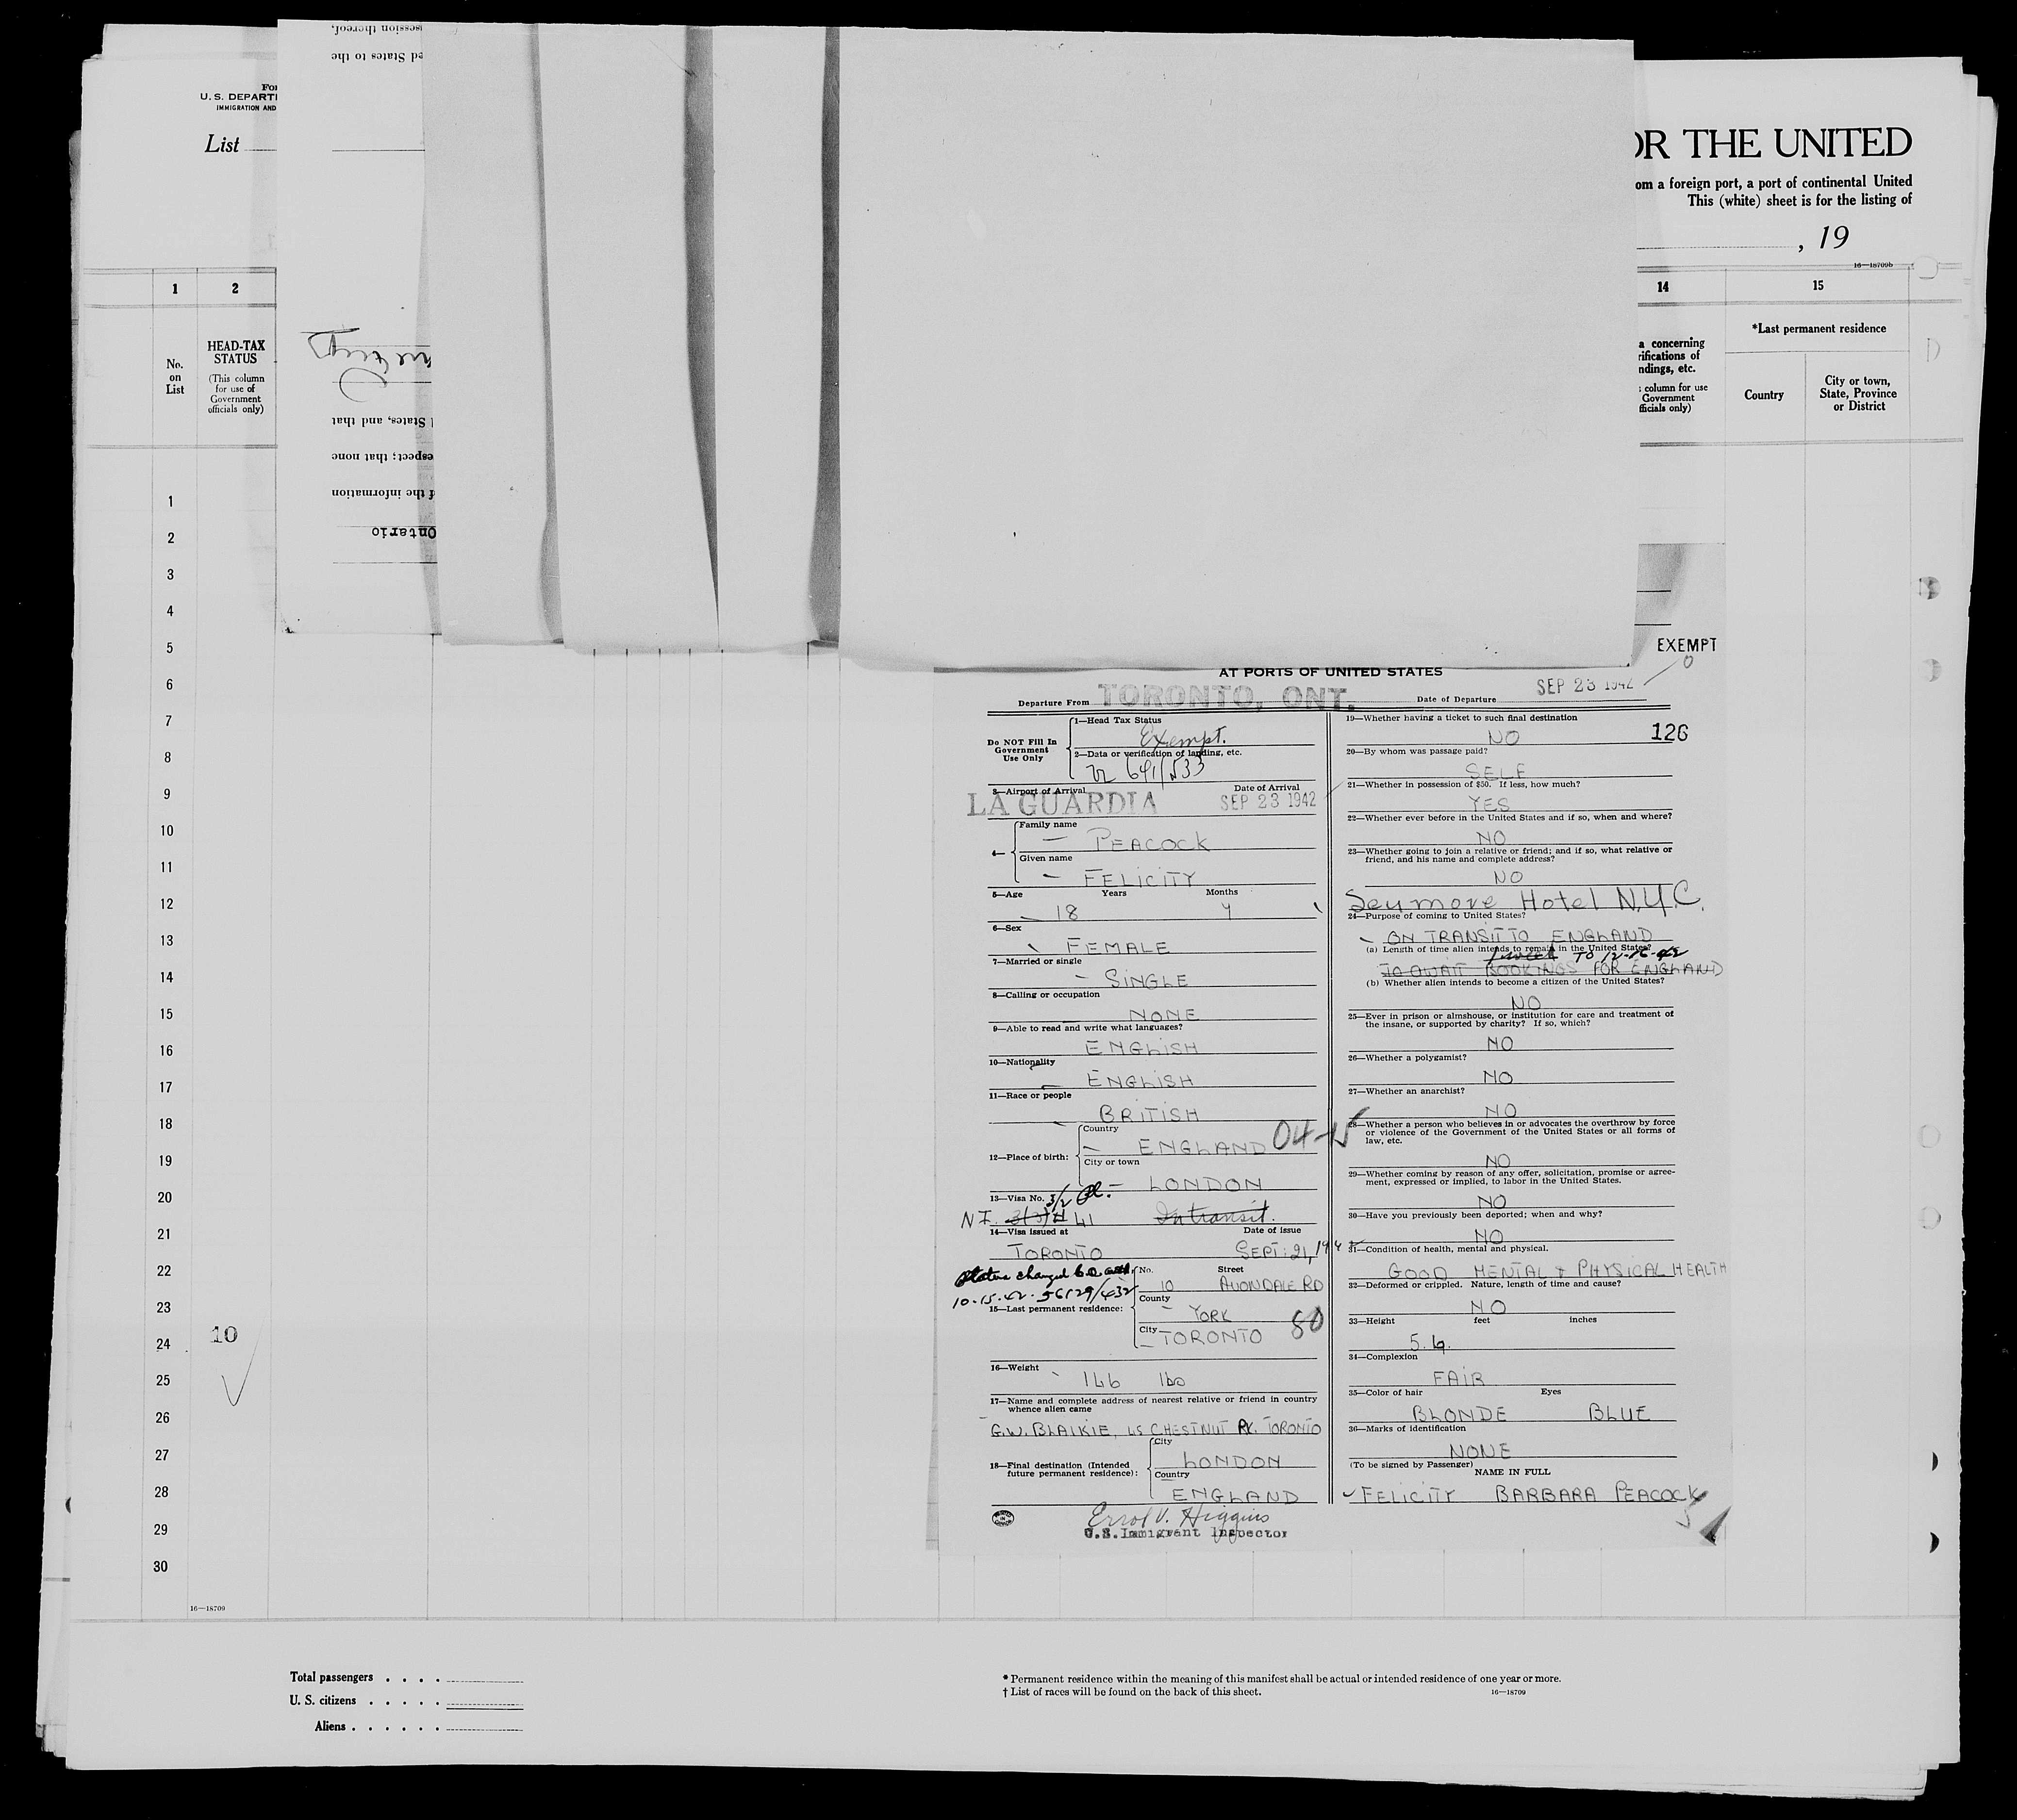 ssession thereof.
ed States to the
U. S. DEPART
IMMIGRATION AND
List
OR THE UNITED
om a foreign port, a port of continental United
This (white) sheet is for the listing of
, 19
16—18709b
1 2 14 15
No.
on
List
HEAD-TAX
STATUS
(This column
for use of
Government
officials only)
a concerning
rifications of
ndings, etc.
: column for use
Government
fficials only)
*Last permanent residence
Country
City or town,
State, Province
or District
States, and that
espect; that none
f the information
Ontario
1
2
3
4
5
6
7
8
9
10
11
12
13
14
15
16
17
18
19
20
21
22
23
24
25
26
27
28
29
30
10
16—18709
EXEMPT
AT PORTS OF UNITED STATES
Departure From TORONTO, ONT. Date of Departure SEP 23 1942
Do NOT Fill In
Government
Use Only
1—Head Tax Status
Exempt.
2—Data or verification of landing, etc.
3—Airport of Arrival Date of Arrival
LA GUARDIA SEP 23 1942
4—
Family name
PEACOCK
Given name
FELICITY
5—Age Years Months
18
6—Sex
FEMALE
7—Married or single
SINGLE
8—Calling or occupation
NONE
9—Able to read and write what languages?
ENGLISH
10—Nationality
ENGLISH
11—Race or people
BRITISH
12—Place of birth:
Country
ENGLAND
City or town
LONDON
13—Visa No.
In transit.
14—Visa issued at Date of issue
TORONTO SEPT: 21, 194
Status changed
10-15-42- 56129/432
15—Last permanent residence:
No. Street
10 AVONDALE RD
County
YORK
City
TORONTO 80
16—Weight
146 lbs
17—Name and complete address of nearest relative or friend in country
whence alien came
G.W. BLAIKIE, CHESTNUT PK. TORONTO
18—Final destination (Intended
future permanent residence):
City
LONDON
Country
ENGLAND
Errol V. Higgins
U.S. Immigrant Inspector
19—Whether having a ticket to such final destination
NO 126
20—By whom was passage paid?
SELF
21—Whether in possession of $50. If less, how much?
YES
22—Whether ever before in the United States and if so, when and where?
NO
23—Whether going to join a relative or friend; and if so, what relative or
friend, and his name and complete address?
NO
Seymore Hotel N.Y.C.
24—Purpose of coming to United States?
ON TRANSIT TO ENGLAND
(a) Length of time alien intends to remain in the United States?
TO 12-16-42
TO AWAIT BOOKINGS FOR ENGLAND
(b) Whether alien intends to become a citizen of the United States?
NO
25—Ever in prison or almshouse, or institution for care and treatment of
the insane, or supported by charity? If so, which?
NO
26—Whether a polygamist?
NO
27—Whether an anarchist?
NO
28—Whether a person who believes in or advocates the overthrow by force
or violence of the Government of the United States or all forms of
law, etc.
NO
29—Whether coming by reason of any offer, solicitation, promise or agree-
ment, expressed or implied, to labor in the United States.
NO
30—Have you previously been deported; when and why?
NO
31—Condition of health, mental and physical.
GOOD MENTAL & PHYSICAL HEALTH
32—Deformed or crippled. Nature, length of time and cause?
NO
33—Height feet inches
34—Complexion
FAIR
35—Color of hair Eyes
BLONDE BLUE
36—Marks of identification
NONE
(To be signed by Passenger)
NAME IN FULL
FELICITY BARBARA PEACOCK
Total passengers . . . .
U. S. citizens . . . . .
Aliens . . . . . .
* Permanent residence within the meaning of this manifest shall be actual or intended residence of one year or more.
† List of races will be found on the back of this sheet. 16—18709